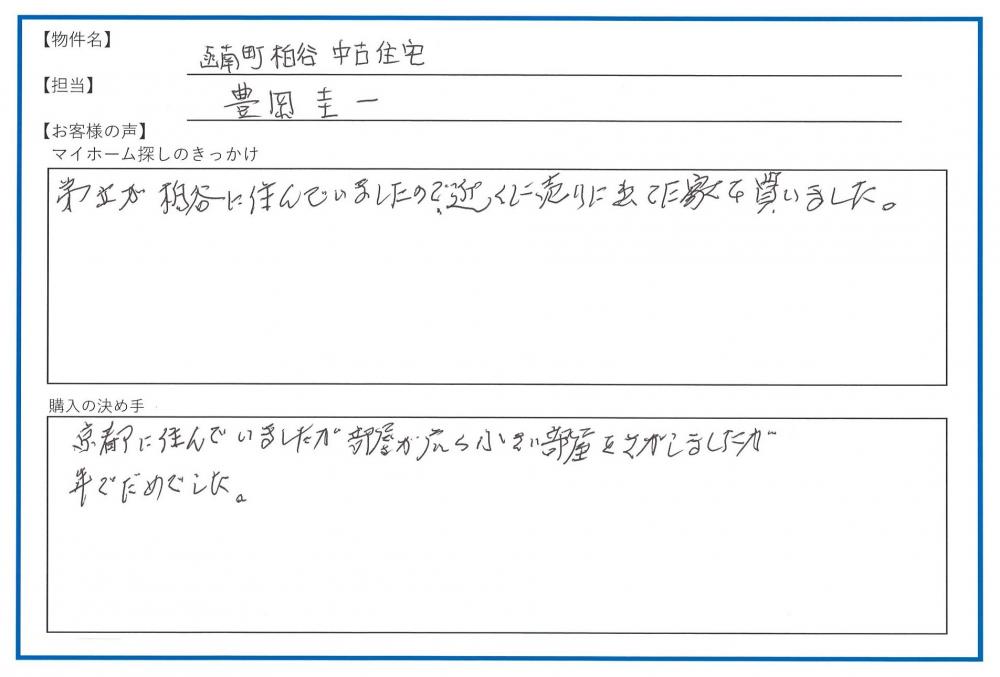 【物件名】
函南町柏谷 中古住宅
【担当】
豊岡 圭一
【お客様の声】
マイホーム探しのきっかけ
弟が 柏谷に住んでいましたので近くに売りに出てた家を買いました。
購入の決め手
京都に住んでいましたが部屋が広く小さい部屋をさがしましたが
年でだめでした。